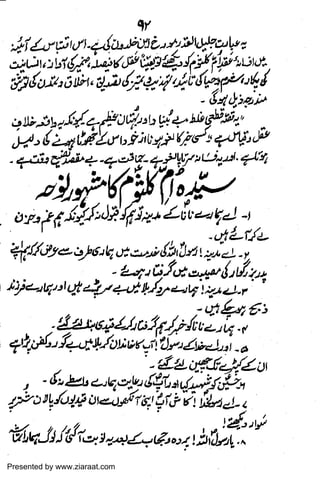 ۹۲
یہ عبارت جلیل القدر مورخ ابن خلدون کی ہے۔ اس اقتباس کے آئینہ
میں افسانۂ عقد ام کلثوم کو دیکھئے تو یقیناً عقل کا فیصلہ ضمیر کی آواز، انسانیت
کی پکار، شرم و حیا کی تائید، تہذیب و تمیز کی تصدیق، اخلاق و تمدن کی توثیق
مندرجہ ذیل ہوگی۔
یہ قصہ قطعی غلط بے بنیاد اور بہتان عظیم ہے کیونکہ یہ واقعہ خلاف
عقل و قیاس ہے کسی خبر کا لغو ہونا از خود اس کے جھوٹا ہونے کی دلیل
ہوتا ہے۔ اور یہ فسانہ سرتاپا لغو ہے۔ حماقت ہے۔ بے مقصد تضییع وقت ہے۔
سیدہ ام کلثوم کا مشہور نوحہ
۱۔ اے ہمارے نانا کے مدینہ تو ہم کو قبول نہ کر کیونکہ ہم غم و حزن
لے کر آئے ہیں۔
۲۔ اے مدینہ! رسول اللہ کی خدمت میں ہماری طرف سے عرض کر کہ ہم اپنے
پدر بزرگوار کی مصیبت میں گرفتار ہوئے۔
۳۔ اے مدینہ! ہمارے مرد کربلا میں بے سر پڑے ہیں اور ہمارے فرزند
ذبح ہو چکے ہیں۔
۴۔ ہمارے نانا کو خبر کر کہ ہم گرفتار کر کے قیدی بنا لئے گئے۔
۵۔ اور اے خدا کے رسول! آپ کا خاندان کربلا میں بے گور و کفن پڑا ہے
ان کے کپڑے تک چھین لئے گئے۔
۶۔ حسین کو شہید کیا اور آپ کی رعایت ہمارے واسطے نہ کی۔
۷۔ اے رسول خدا! کاش آپ اپنی آنکھوں سے ان قیدیوں کو پالان شتر پر
سوار دیکھتے!
۸۔ یا رسول اللہ! پردہ و حجاب کے بعد یہ نوبت آگئی کہ لوگ ہمارا تماشا
Presented by www.ziaraat.com